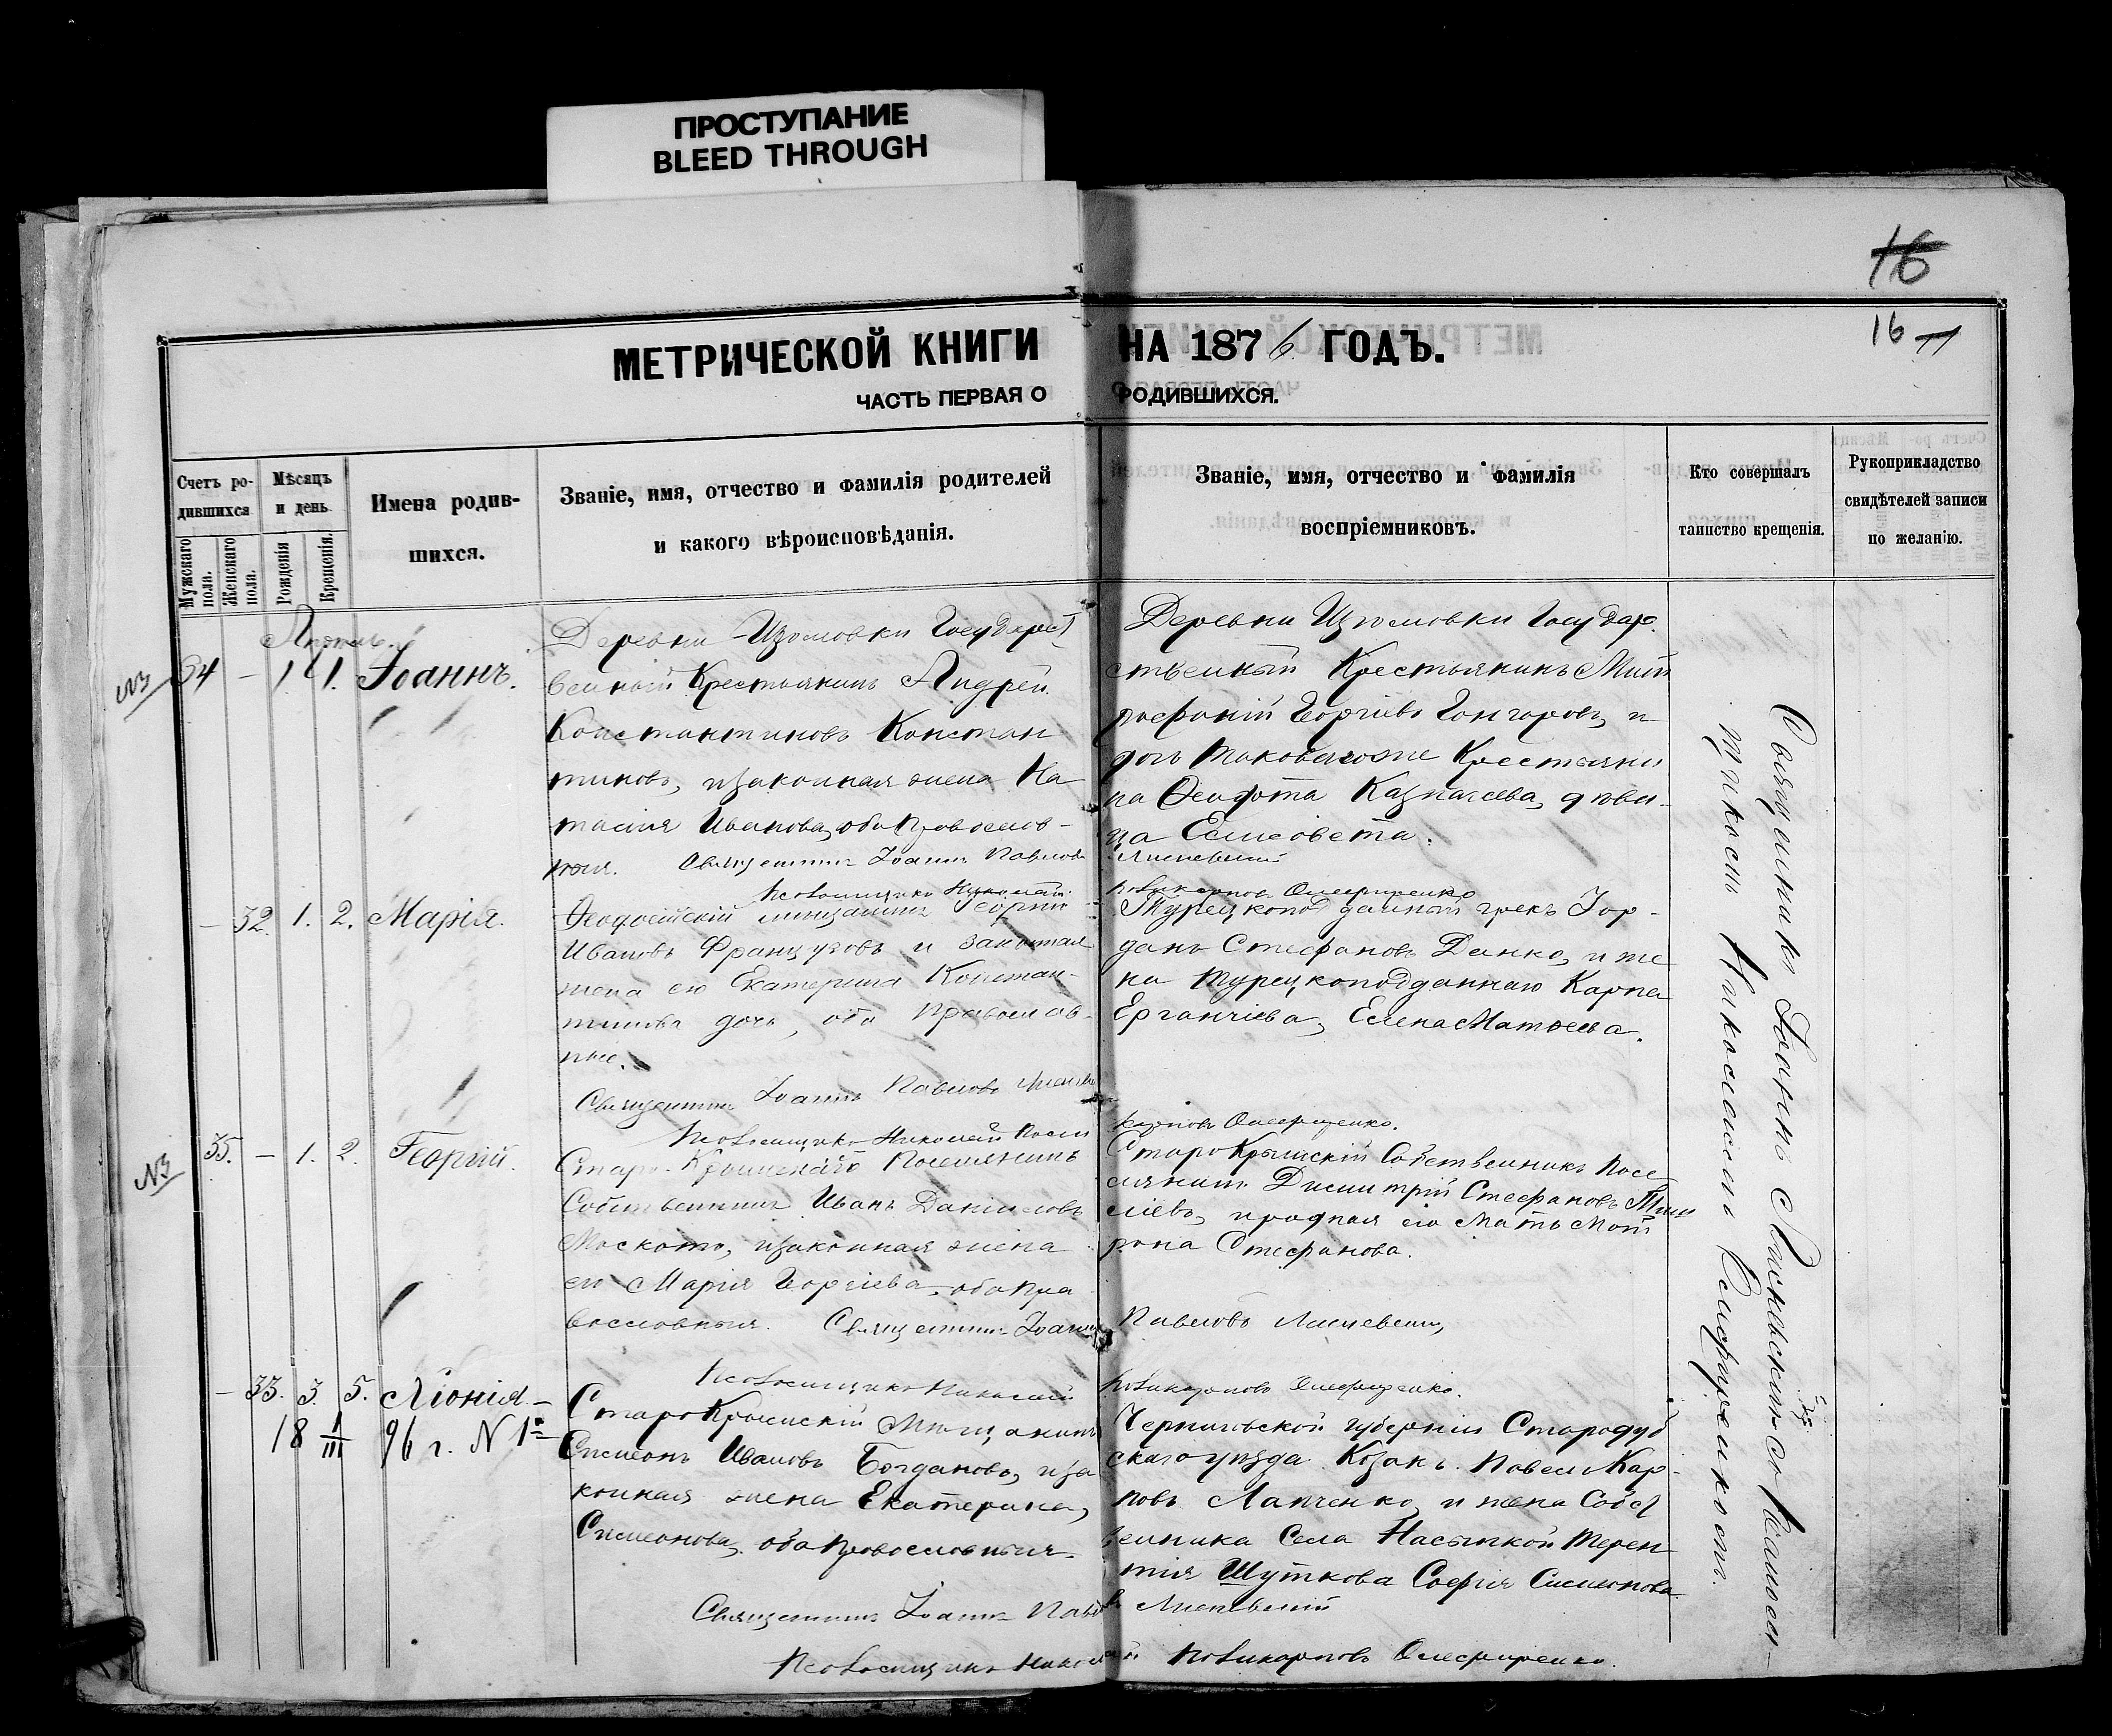 ПРОСТУПАНИЕ
BLEED THROUGH
16
16
МЕТРИЧЕСКОЙ КНИГИ НА 1876 ГОДЪ.
ЧАСТЬ ПЕРВАЯ О РОДИВШИХСЯ.
Счетъ ро-
дившихся
Мужскаго пола.
Женскаго пола.
Мѣсяцъ
и день.
Рожденія
Крещенія.
Имена родив-
шихся.
Званіе, имя, отчество и фамилія родителей
и какого вѣроисповѣданія.
Званіе, имя, отчество и фамилія
воспріемниковъ.
Кто совершалъ
таинство крещенія.
Рукоприкладство
свидѣтелей записи
по желанію.
34 – 1. 1. Іоаннъ.
Деревни Изюмовки Государст
венный Крестьянинъ Андрей
Константиновъ Констан
тиновъ, изаконная жена На
тасія Иванова, оба Православ-
ныя. Священникъ Іоаннъ Павловъ
Деревни Изюмовки Государ.
ственный Крестьянинъ Мит
рофаній Георгіевъ Гончаровъ, и
дочь таковагоже Крестьяни
на Казначеева, дѣви-
ца Елисовета.
– 32. 1. 2. Марія.
Феодосійскій мещанинъ Георгій
Ивановъ Французовъ и законная
жена его Екатерина Констан-
тинова дочь, оба Православ-
ные.
Священникъ Іоаннъ Павловъ
Турецкоподданный грекъ Іор-
данъ Стефановъ Данко, и же
на турецкоподданнаго Карпа
Ерганчіева, Елена Матвева.
Поликарповъ Олефиренко.
35. – 1. 2. Георгій.
Старо-Крымскаго Поселянинъ
Собственникъ Иванъ Даниловъ
изаконная жена
его Марія Георгіева, оба Пра
вославныя. Священникъ Іоаннъ
СтароКрымскій Собственникъ Посе
лянинъ Димитрій Стефановъ
и родная его Мать Мот
рона Стефанова.
Павловъ
Псаломщикъ Николай
Поликарповъ Олефиренко.
– 33. 3. 5. Ліонія.
18 1/III 96 г. N 1
СтароКрымскій Мѣщанинъ
Симеонъ Ивановъ Богдановъ, иза
конная жена Екатерина
Симеонова, оба Православныя.
Священникъ Іоаннъ Павло
Псаломщикъ Николай
Черниговской губерніи Стародуб
скаго уѣзда Козакъ Павелъ Кар-
повъ Лапченко, и жена Собст
венника Села Насыпкой Терен
тія Шуткова Софія Симеонова.
Поликарповъ Олефиренко.
Священникъ Іоаннъ
Николаемъ Олефиренкомъ.